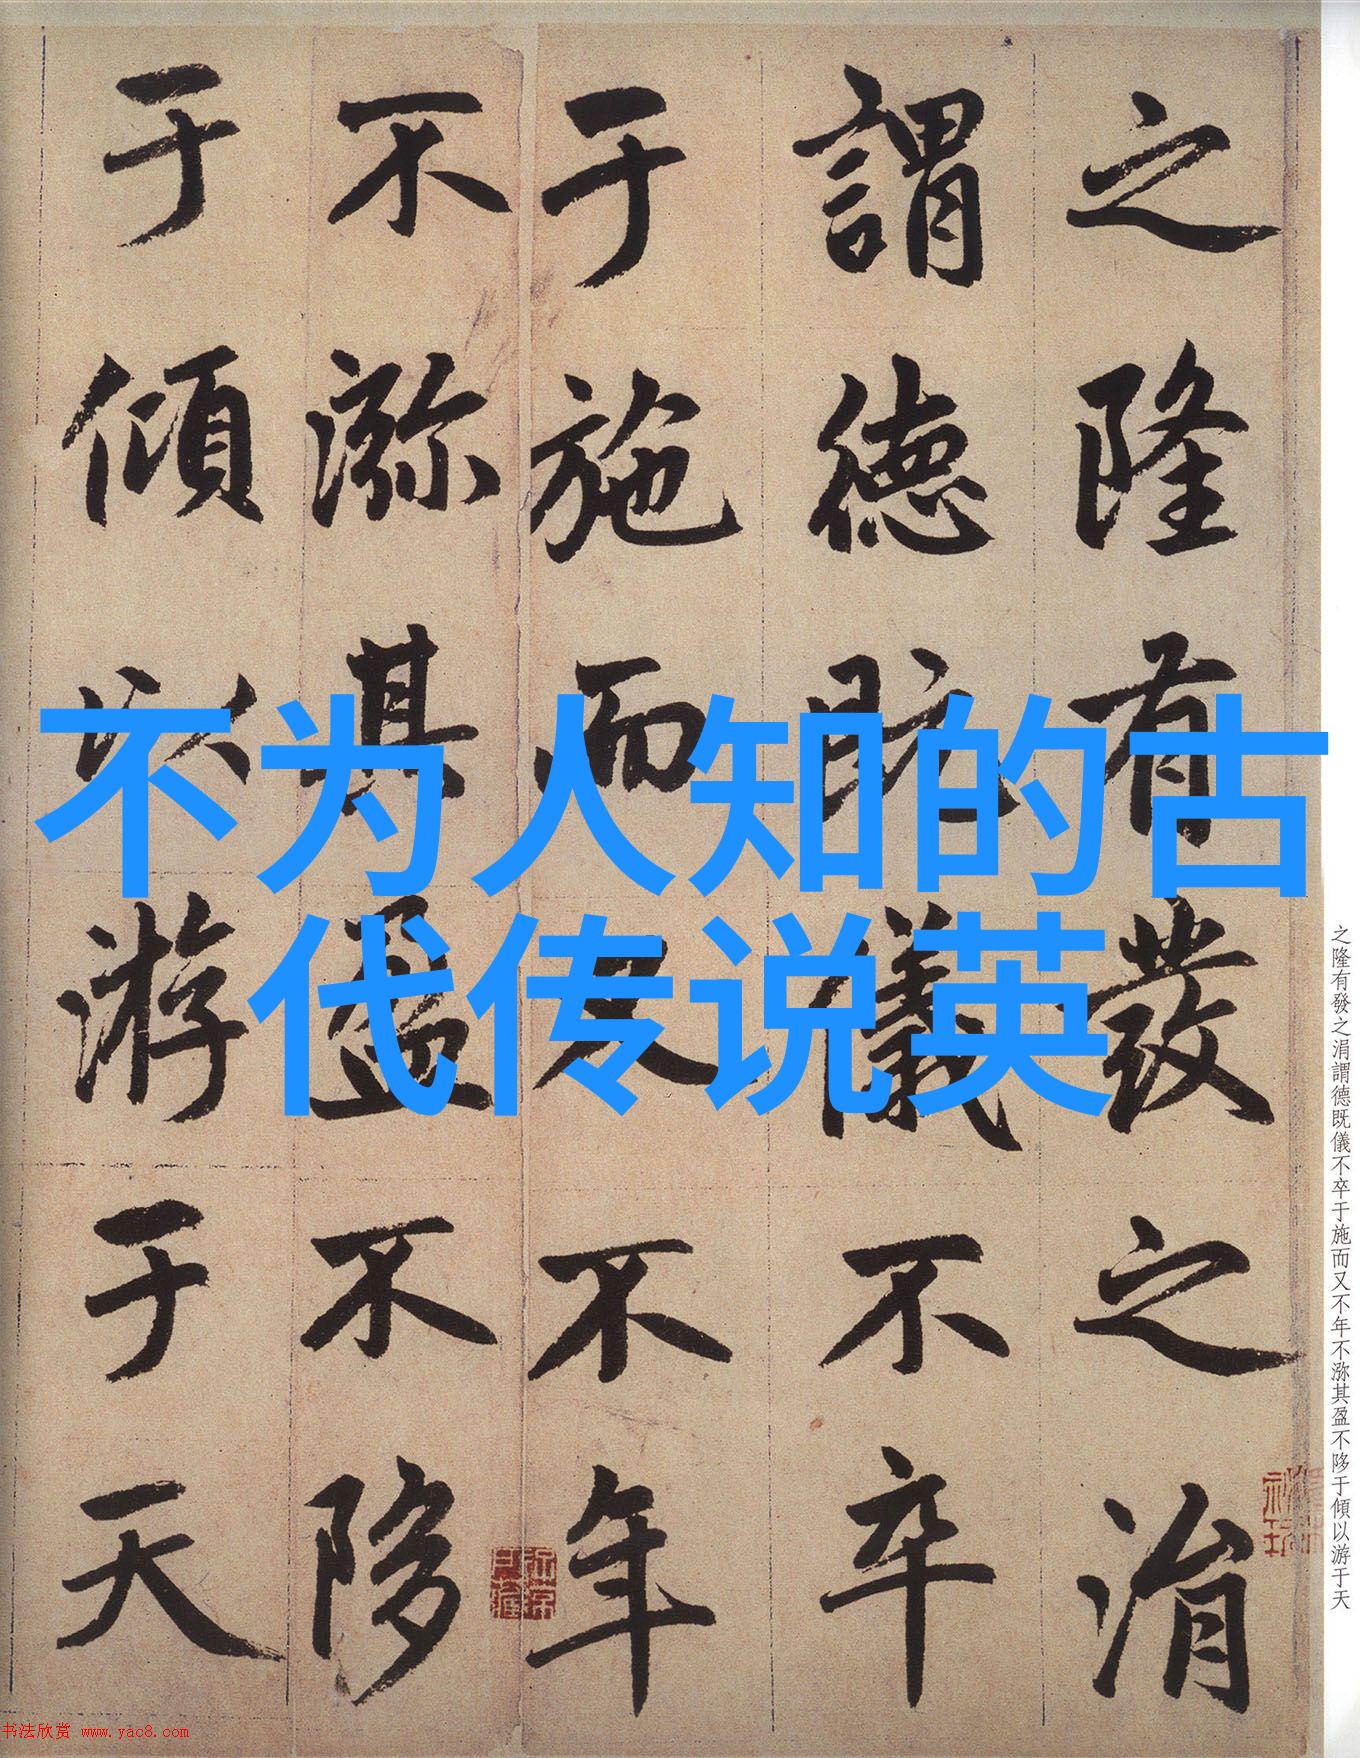 不为人知的古
代传说英
之隆有發之涓
謂德既儀不卒
于施而又不年
不㳽其盈不陊
于傾以游于天
之隆有發之涓謂德既儀不卒于施而又不年不㳽其盈不陊于傾以游于天
书法欣赏 www.yac8.com